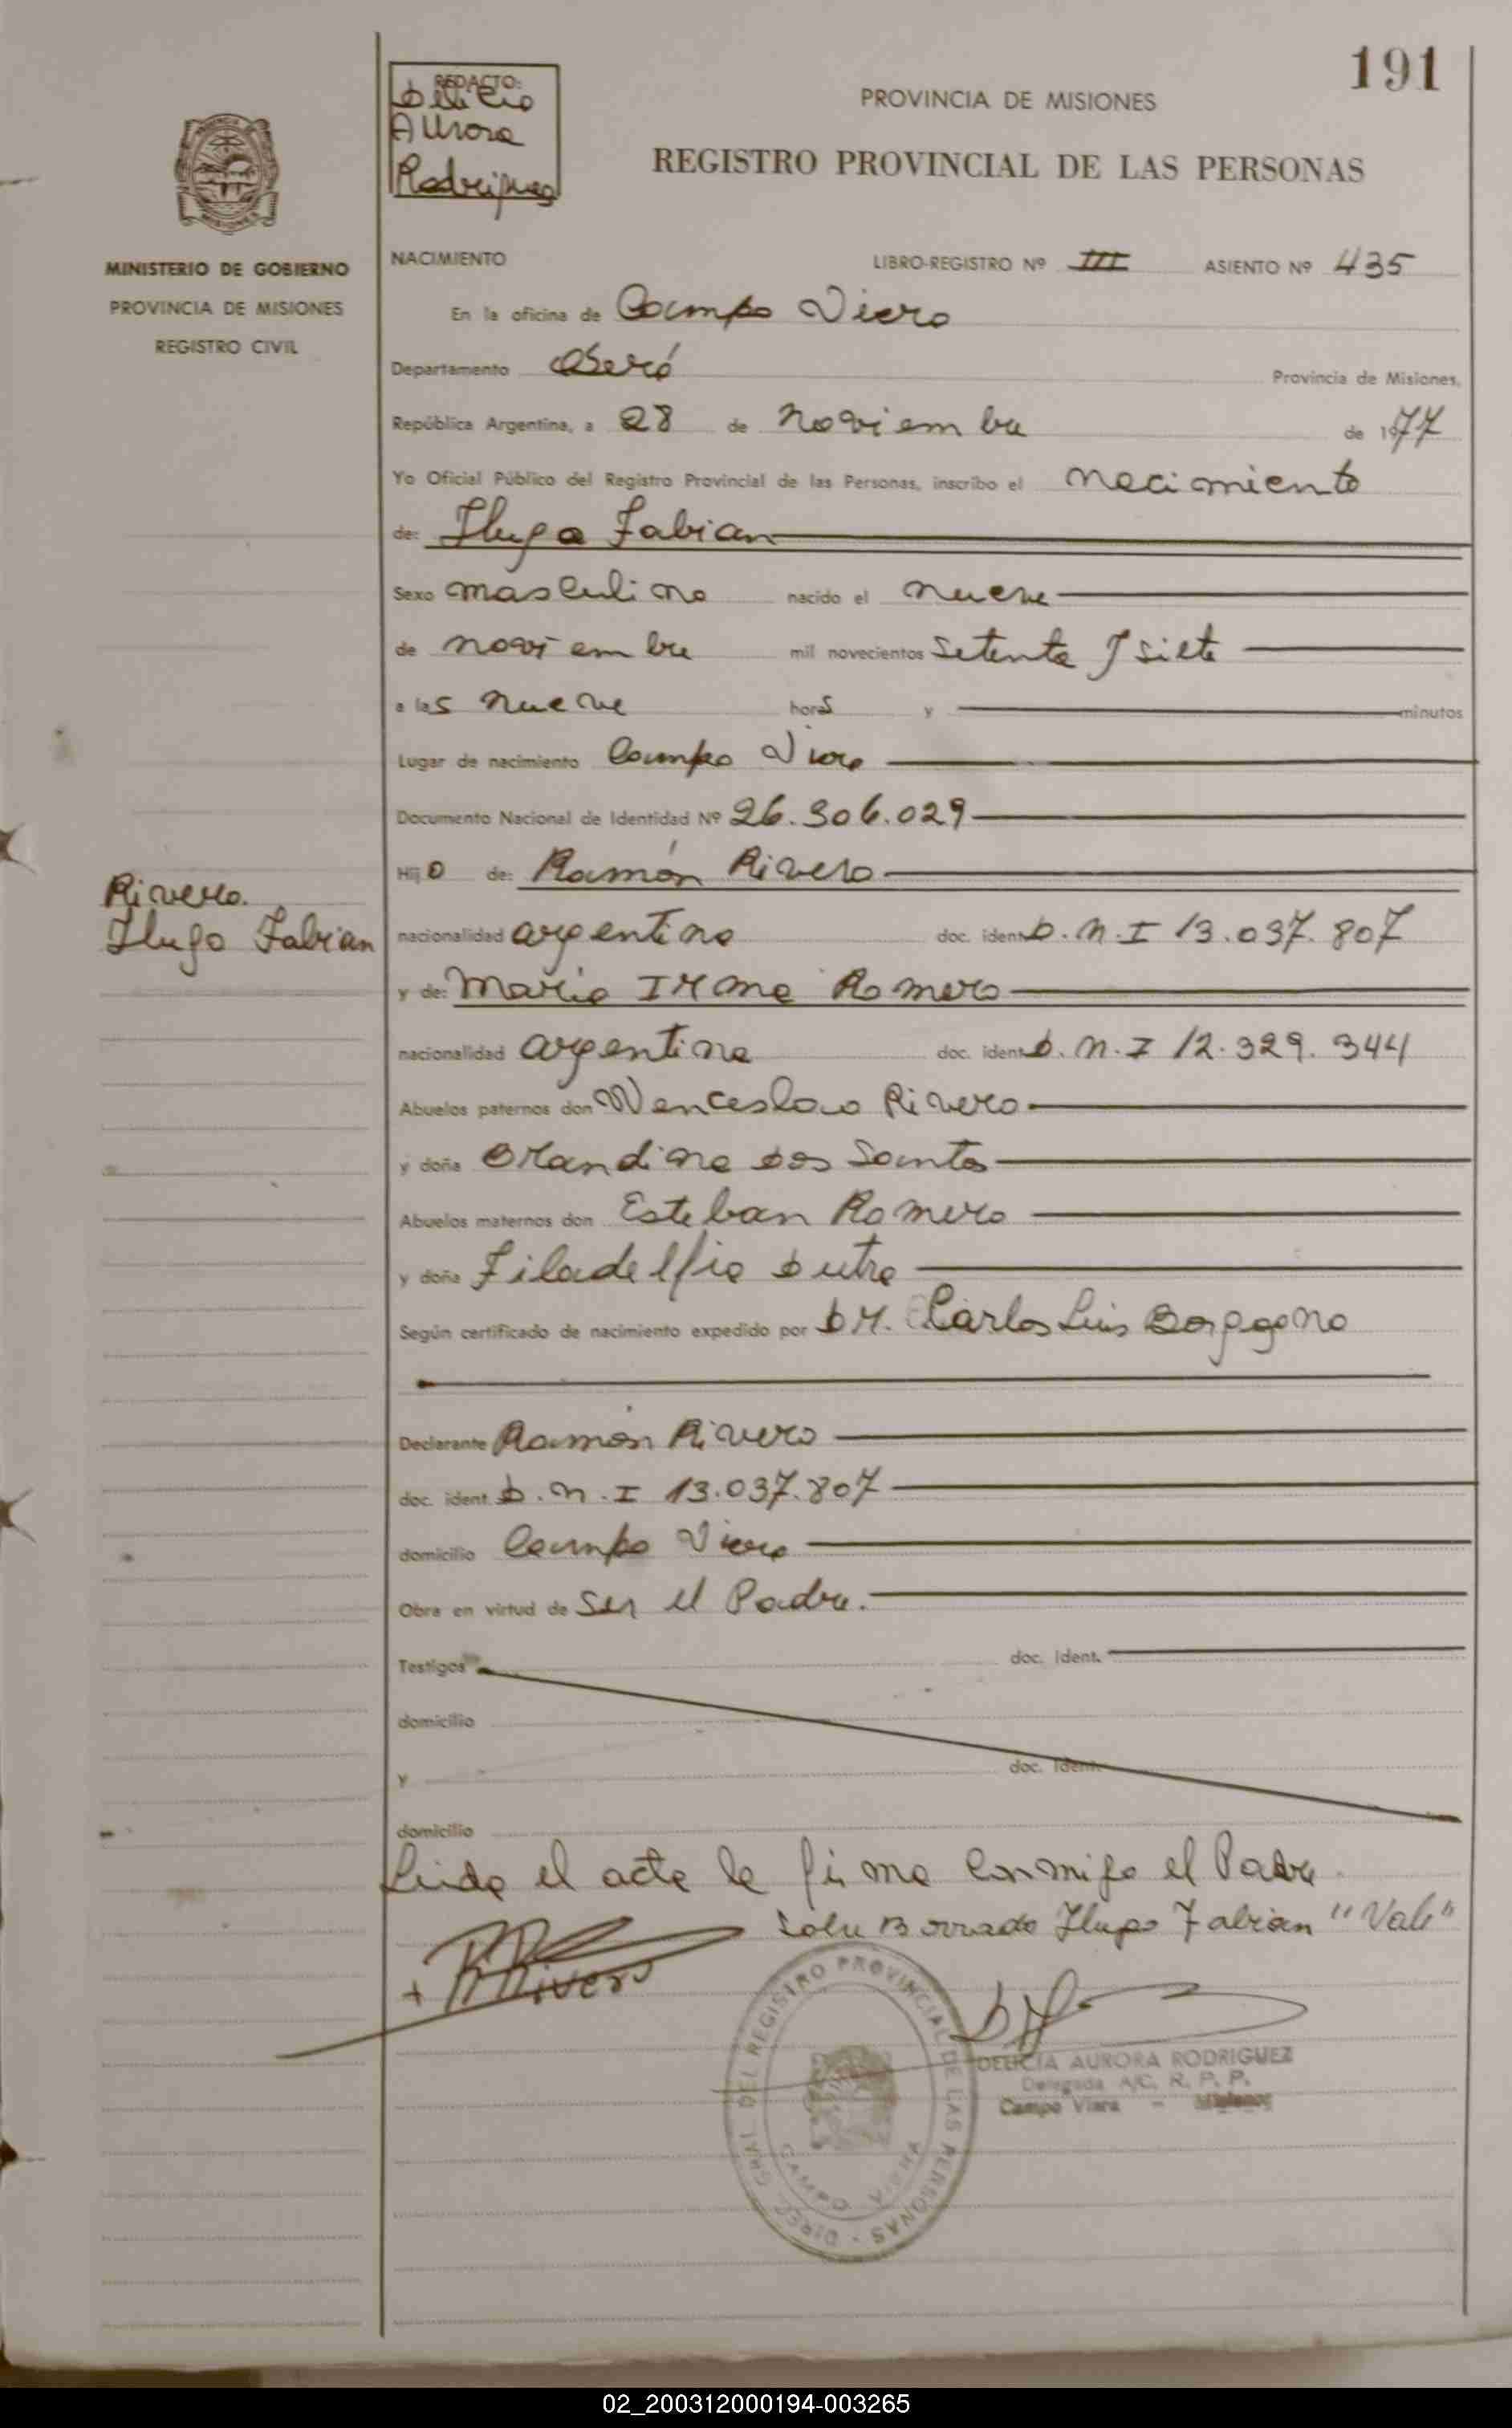 191
REDACTO:
Delicia
Aurora
Rodriguez
PROVINCIA DE MISIONES
REGISTRO PROVINCIAL DE LAS PERSONAS
MINISTERIO DE GOBIERNO
PROVINCIA DE MISIONES
REGISTRO CIVIL
NACIMIENTO LIBRO-REGISTRO Nº III ASIENTO Nº 435
En la oficina de Campo Viera
Departamento Oberá Provincia de Misiones,
República Argentina, a 28 de Noviembre de 1977
Yo Oficial Público del Registro Provincial de las Personas, inscribo el nacimiento
de: Hugo Fabian
Sexo masculino nacido el nueve
de noviembre mil novecientos setenta y siete
a las nueve horas y minutos
Lugar de nacimiento Campo Viera
Documento Nacional de Identidad Nº 26.306.029
Hijo de: Ramón Rivero
Rivero.
Hugo Fabian
nacionalidad argentina doc. ident. D.N.I 13.037.807
y de: Maria Irma Romero
nacionalidad argentina doc. ident. D.N.I 12.329.344
Abuelos paternos don Wenceslao Rivero
y doña Orandina dos Santos
Abuelos maternos don Esteban Romero
y doña Filadelfia Dutra
Según certificado de nacimiento expedido por Dr. Carlos Luis Borgogno
Declarante Ramón Rivero
doc. ident. D.N.I 13.037.807
domicilio Campo Viera
Obra en virtud de ser el Padre.
Testigos doc. ident.
domicilio
y doc. ident.
domicilio
Leida el acta la firma conmigo el Padre
Sobre Borrado Hugo Fabian "Vale"
+ RRivero
DIREC. GRAL DEL REGISTRO PROVINCIAL DE LAS PERSONAS -
CAMPO VIERA
DELICIA AURORA RODRIGUEZ
Delegada A/C. R. P. P.
Campo Viera - Misiones
02_200312000194-003265